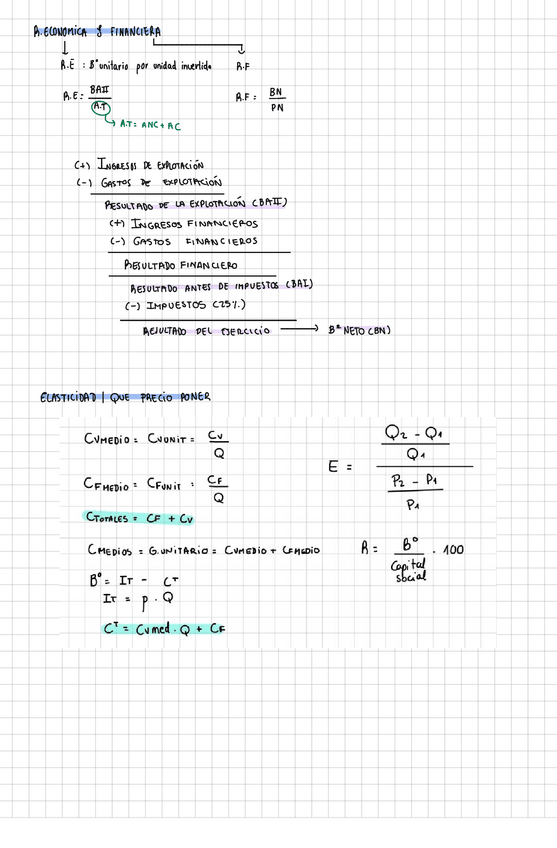 R.ECONOMICA Y FINANCIERA
R.E : Bº unitario por unidad invertida R.F
R.E = BAII / A.T
R.F = BN / PN
A.T = ANC + AC
(+) INGRESOS DE EXPLOTACIÓN
(-) GASTOS DE EXPLOTACIÓN
RESULTADO DE LA EXPLOTACIÓN (BAII)
(+) INGRESOS FINANCIEROS
(-) GASTOS FINANCIEROS
RESULTADO FINANCIERO
RESULTADO ANTES DE IMPUESTOS (BAI)
(-) IMPUESTOS (25%)
RESULTADO DEL EJERCICIO → Bº NETO (BN)
ELASTICIDAD | QUE PRECIO PONER
CVMEDIO = CVUNIT = CV / Q
CFMEDIO = CFUNIT = CF / Q
CTOTALES = CF + CV
CMEDIOS = G.UNITARIO = CVMEDIO + CFMEDIO
Bº = IT - CT
IT = p . Q
CT = CVmed . Q + CF
E = ((Q2 - Q1) / Q1) / ((P2 - P1) / P1)
R = Bº / Capital social . 100